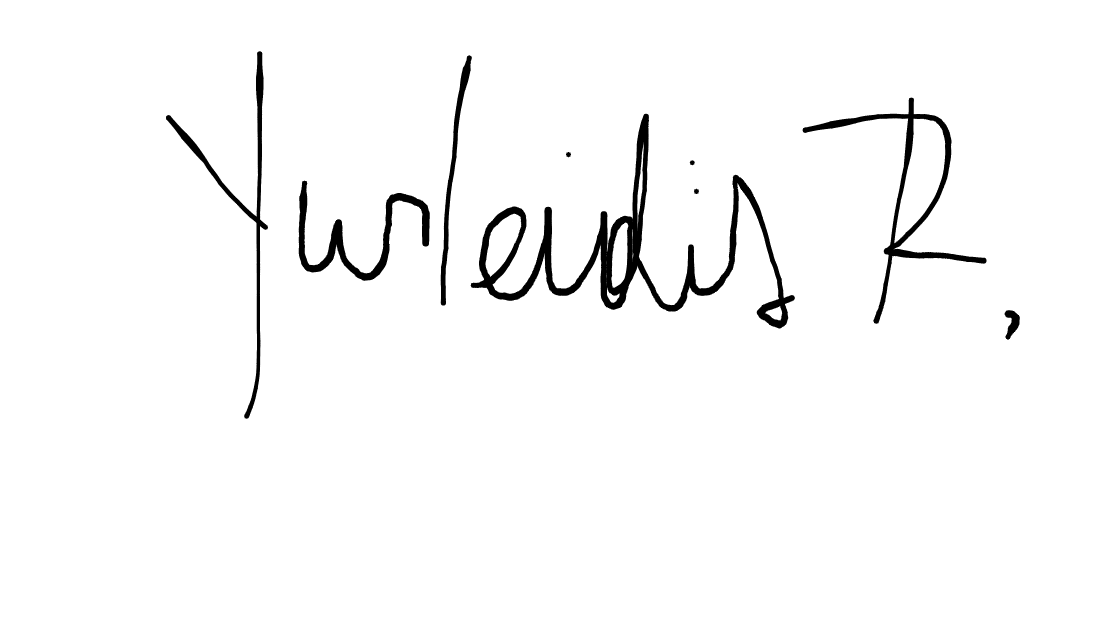 Yurleidis R,